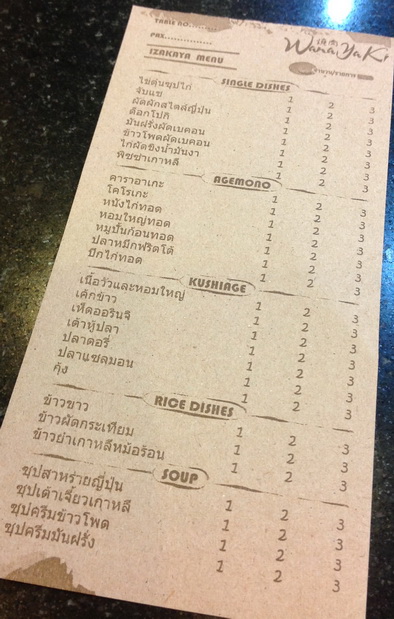 TABLE NO.........
PAX...............
IZAKAYA MENU
WaraiYaKi
SINGLE DISHES
ไข่ตุ๋นซุปไก่ 1 2 3
จับแช 1 2 3
ผัดผักสไตล์ญี่ปุ่น 1 2 3
ต็อกโปกิ 1 2 3
มันฝรั่งผัดเบคอน 1 2 3
ข้าวโพดผัดเบคอน 1 2 3
ไก่ผัดขิงน้ำมันงา 1 2 3
พิซซ่าเกาหลี 1 2 3
AGEMONO
คาราอาเกะ 1 2 3
โคโรเกะ 1 2 3
หนังไก่ทอด 1 2 3
หอมใหญ่ทอด 1 2 3
หมูปั้นก้อนทอด 1 2 3
ปลาหมึกฟริตโต้ 1 2 3
ปีกไก่ทอด 1 2 3
KUSHIAGE
เนื้อวัวและหอมใหญ่ 1 2 3
เค้กข้าว 1 2 3
เห็ดออรินจิ 1 2 3
เต้าหู้ปลา 1 2 3
ปลาดอรี่ 1 2 3
ปลาแซลมอน 1 2 3
กุ้ง 1 2 3
RICE DISHES
ข้าวขาว 1 2 3
ข้าวผัดกระเทียม 1 2 3
ข้าวยำเกาหลีหม้อร้อน 1 2 3
SOUP
ซุปสาหร่ายญี่ปุ่น 1 2 3
ซุปเต้าเจี้ยวเกาหลี 1 2 3
ซุปครีมข้าวโพด 1 2 3
ซุปครีมมันฝรั่ง 1 2 3